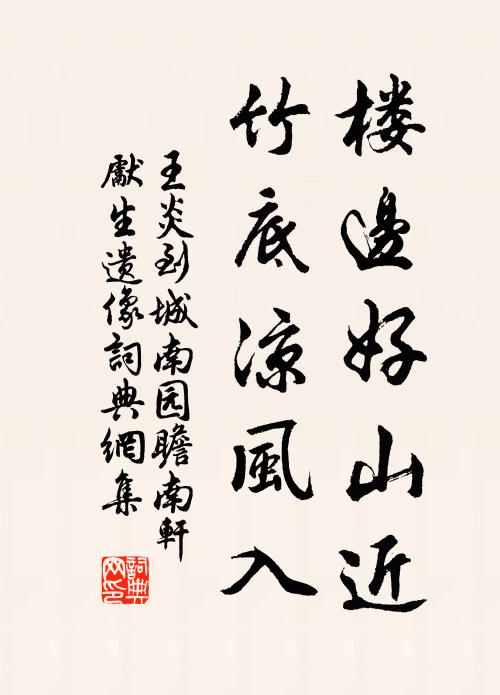 楼邊好山近
竹底涼風入
王炎到城南园瞻南軒
獻生遺像詞典網集
詞典网印